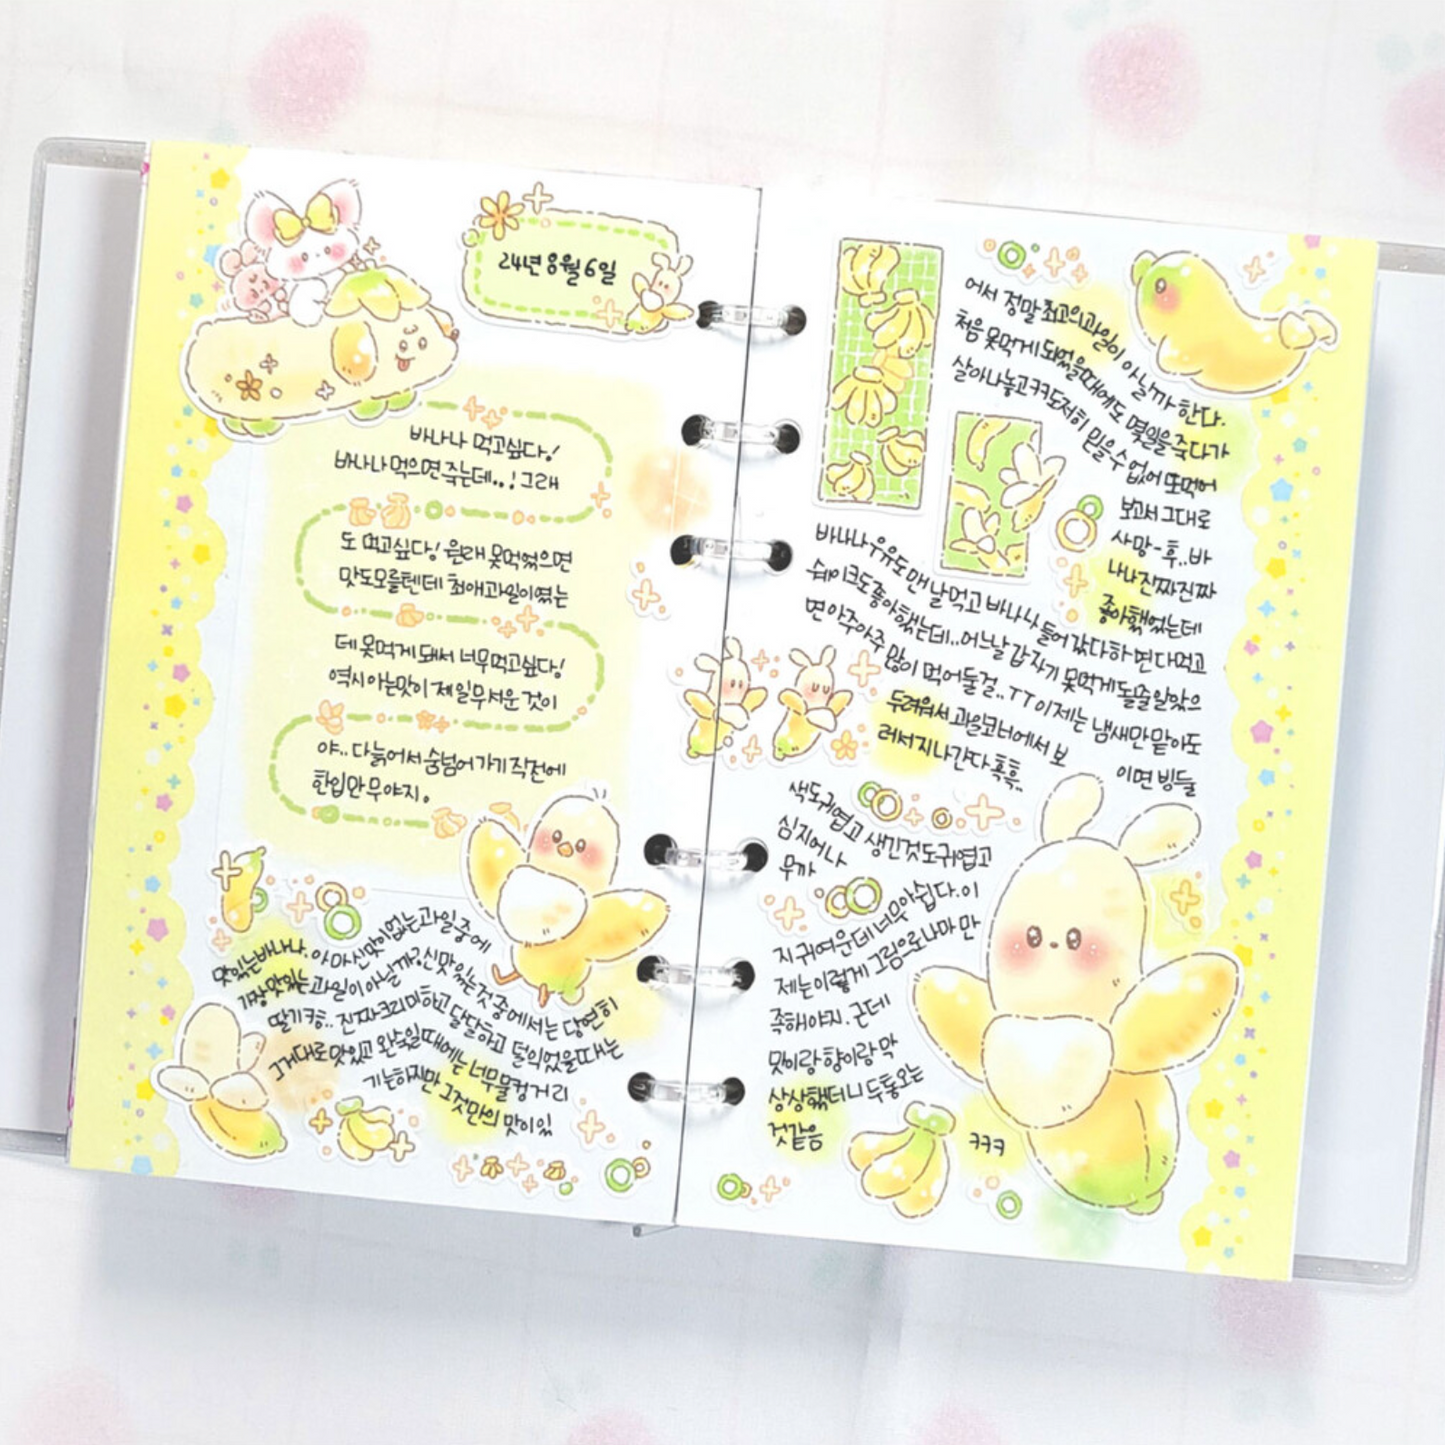 24년 8월 6일
바나나 먹고싶다!
바나나 먹으면 죽는데..! 그래
도 먹고싶다! 원래 못먹었으면
맛도모를텐데 최애과일이였는
데 못먹게 돼서 너무먹고싶다!
역시 아는맛이 제일무서운 것이
야.. 다늙어서 숨넘어가기 직전에
한입만 무야지.
맛있는바나나. 아마 신맛이없는과일중에
가장맛있는 과일이 아닐까? 신맛있는것 중에서는 당연히
딸기ㅋㅎ.. 진짜크리미하고 달달하고 덜익었을때는
그거대로 맛있고 완숙일때에는 너무물컹거리
기는하지만 그것만의 맛이있
어서 정말 최고의과일이 아닐까 한다.
처음 못먹게 되었을때에도 몇일을 죽다가
살아나놓고ㅋㅋ도저히 믿을수없어 또먹어
보고서 그대로
사망-후..바
나나진짜진짜
좋아했었는데
바나나우유도 맨날먹고 바나나 들어갔다하면 다먹고
쉐이크도 좋아했는데..어느날 갑자기 못먹게 돌줄알았으
면 아주아주 많이 먹어둘걸..ㅠㅠ 이제는 냄새만 맡아도
두려워서 과일코너에서 보
이면 빙둘
러서지나간다 흑흑..
색도귀엽고 생긴것도귀엽고
심지어나
무까
지 귀여운데 너무아쉽다. 이
제는이렇게 그림으로나마 만
족해야지. 근데
맛이랑 향이랑 막
상상했더니 두통오는
것같음
ㅋㅋㅋ